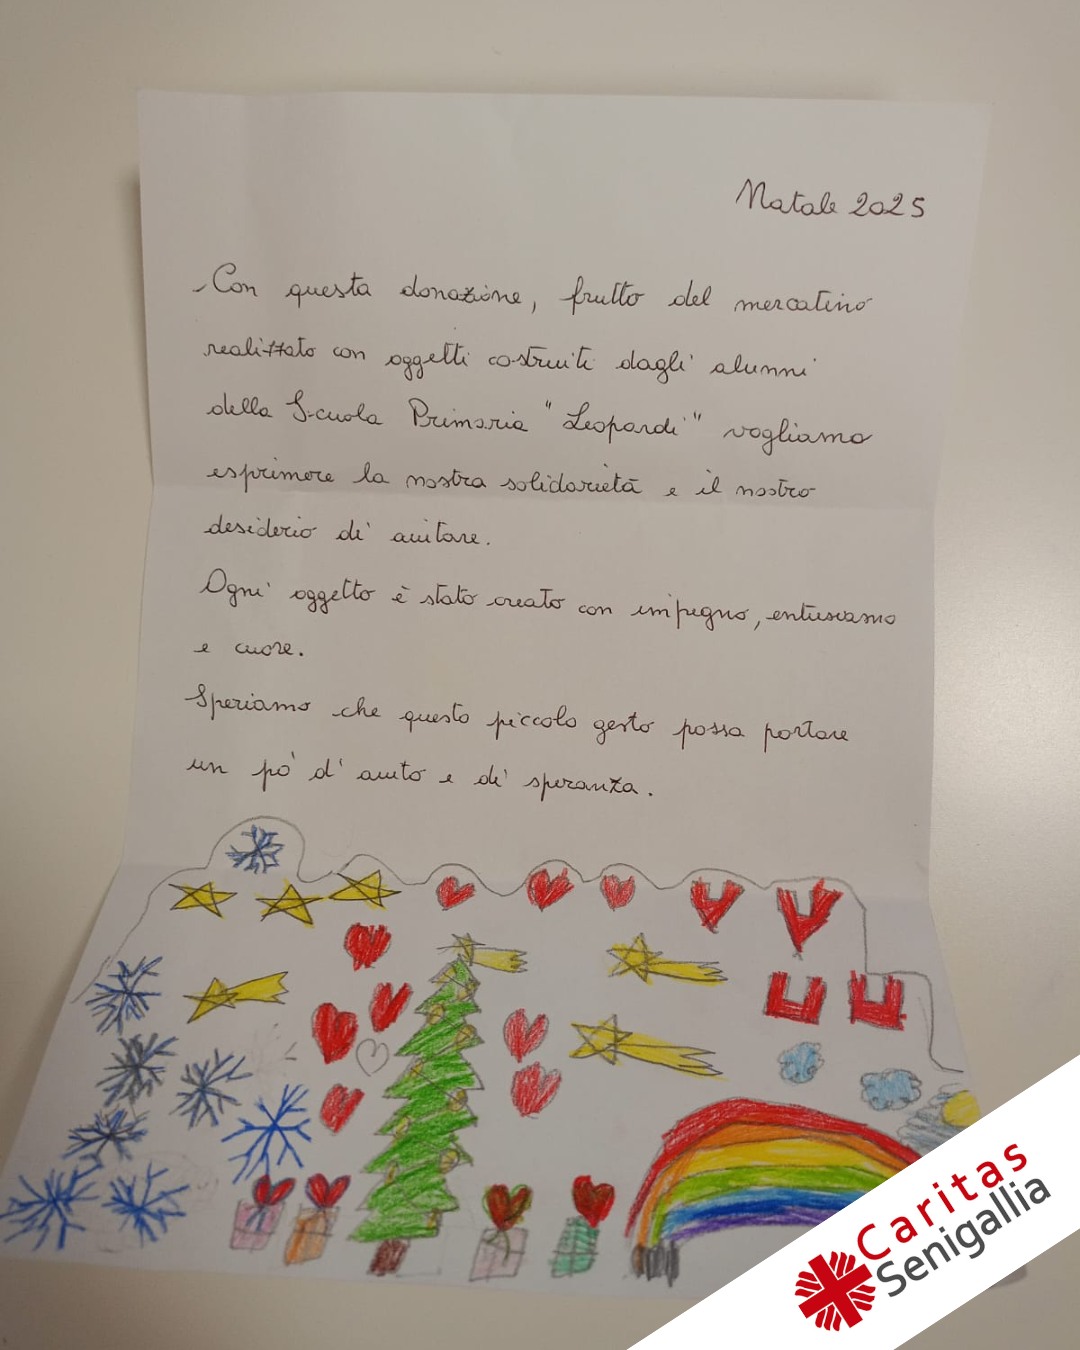 Natale 2025
Con questa donazione, frutto del mercatino
realizzato con oggetti costruiti dagli alunni
della Scuola Primaria "Leopardi" vogliamo
esprimere la nostra solidarietà e il nostro
desiderio di aiutare.
Ogni oggetto è stato creato con impegno, entusiasmo
e cuore.
Speriamo che questo piccolo gesto possa portare
un pò d'aiuto e di speranza.
Caritas
Senigallia